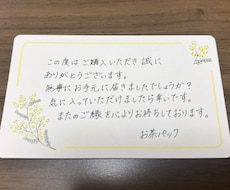 この度はご購入いただき誠に
ありがとうございます。
無事にお手元に届きましたでしょうか?
気に入っていただけましたら幸いです。
またのご縁を心よりお待ちしております。
お茶パック